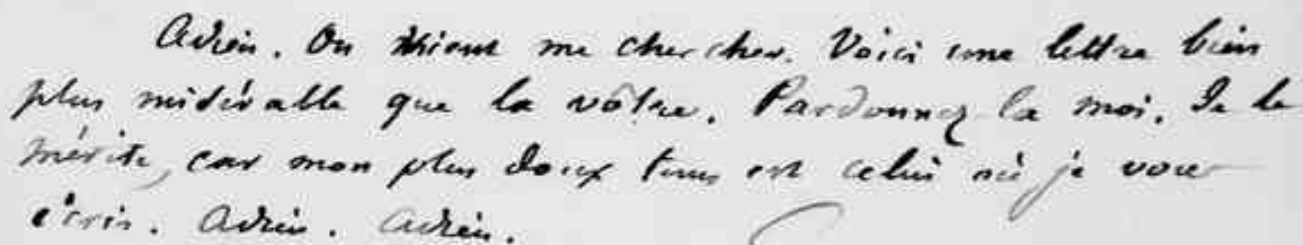 Adieu. On vient me chercher. Voici une lettre bien
plus misérable que la vôtre. Pardonnez-la moi. Je le
mérite, car mon plus doux tems est celui où je vous
écris. Adieu. Adieu.